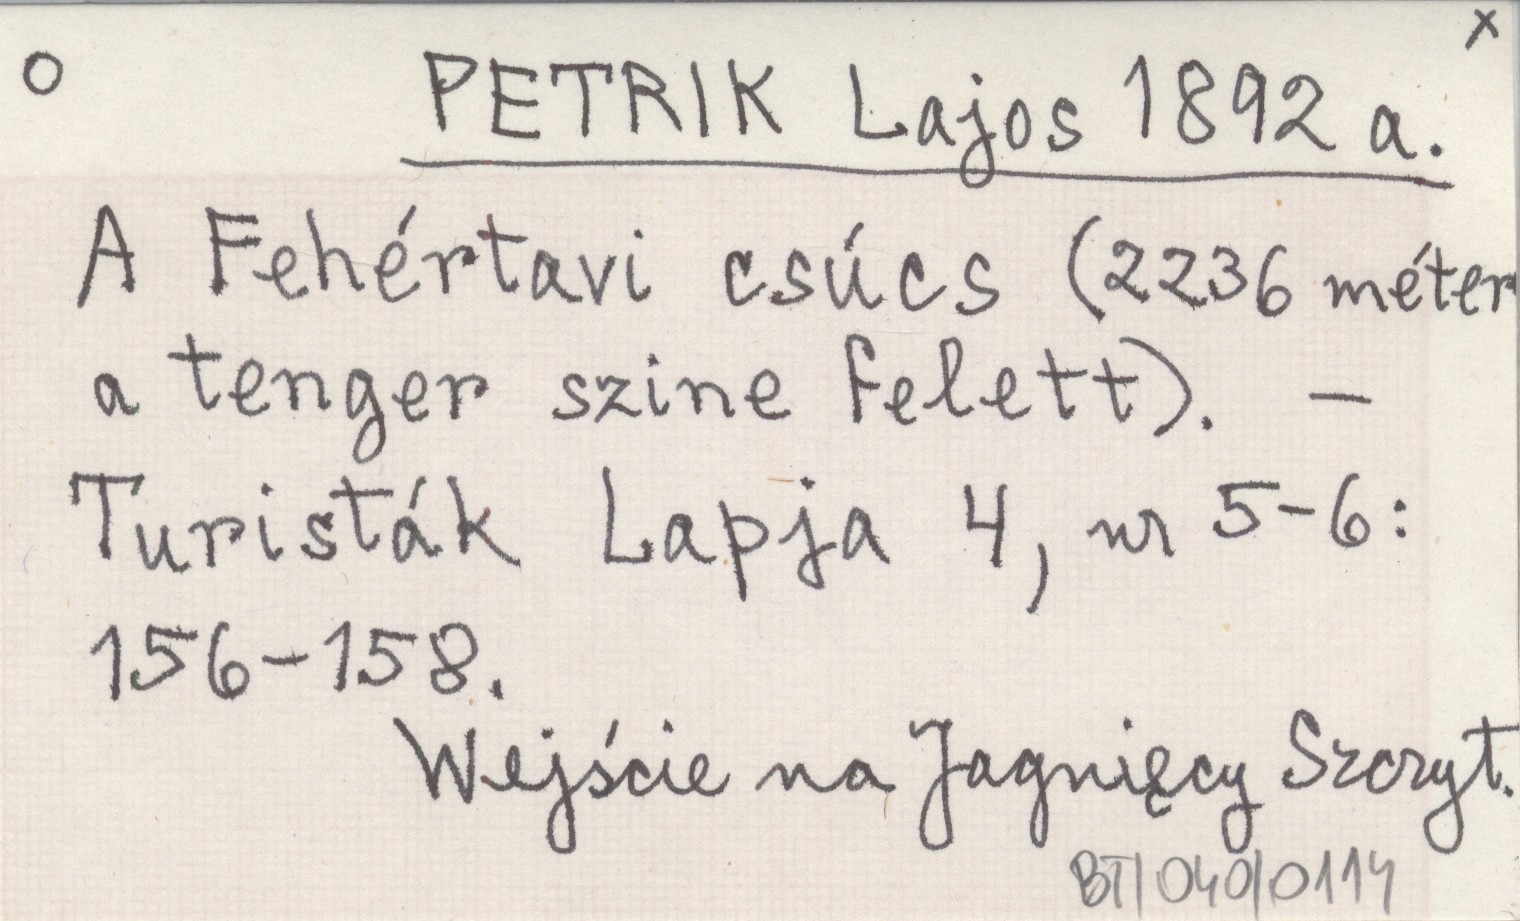 O
x
PETRIK Lajos 1892 a.
A Fehértavi csúcs (2236 méter
a tenger szine felett). —
Turisták Lapja 4, nr 5-6:
156-158.
Wejście na Jagnięcy Szczyt.
BT/040/0114